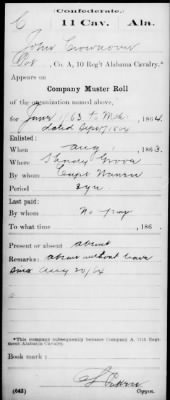 Confederate.
C 11 Cav. Ala.
John
Pvt, Co. A, 10 Reg't Alabama Cavalry.*
Appears on
Company Muster Roll
of the organization named above,
for 1864.
Enlisted:
When Aug 1, 1863.
Where Grove
By whom Capt
Period 3 yrs
Last paid:
By whom No pay
To what time , 186 .
Present or absent absent
Remarks: absent without leave
since Aug 20/64
*This company subsequently became Company A, 11th Regiment Alabama Cavalry.
Book mark:
(642) Copyist.